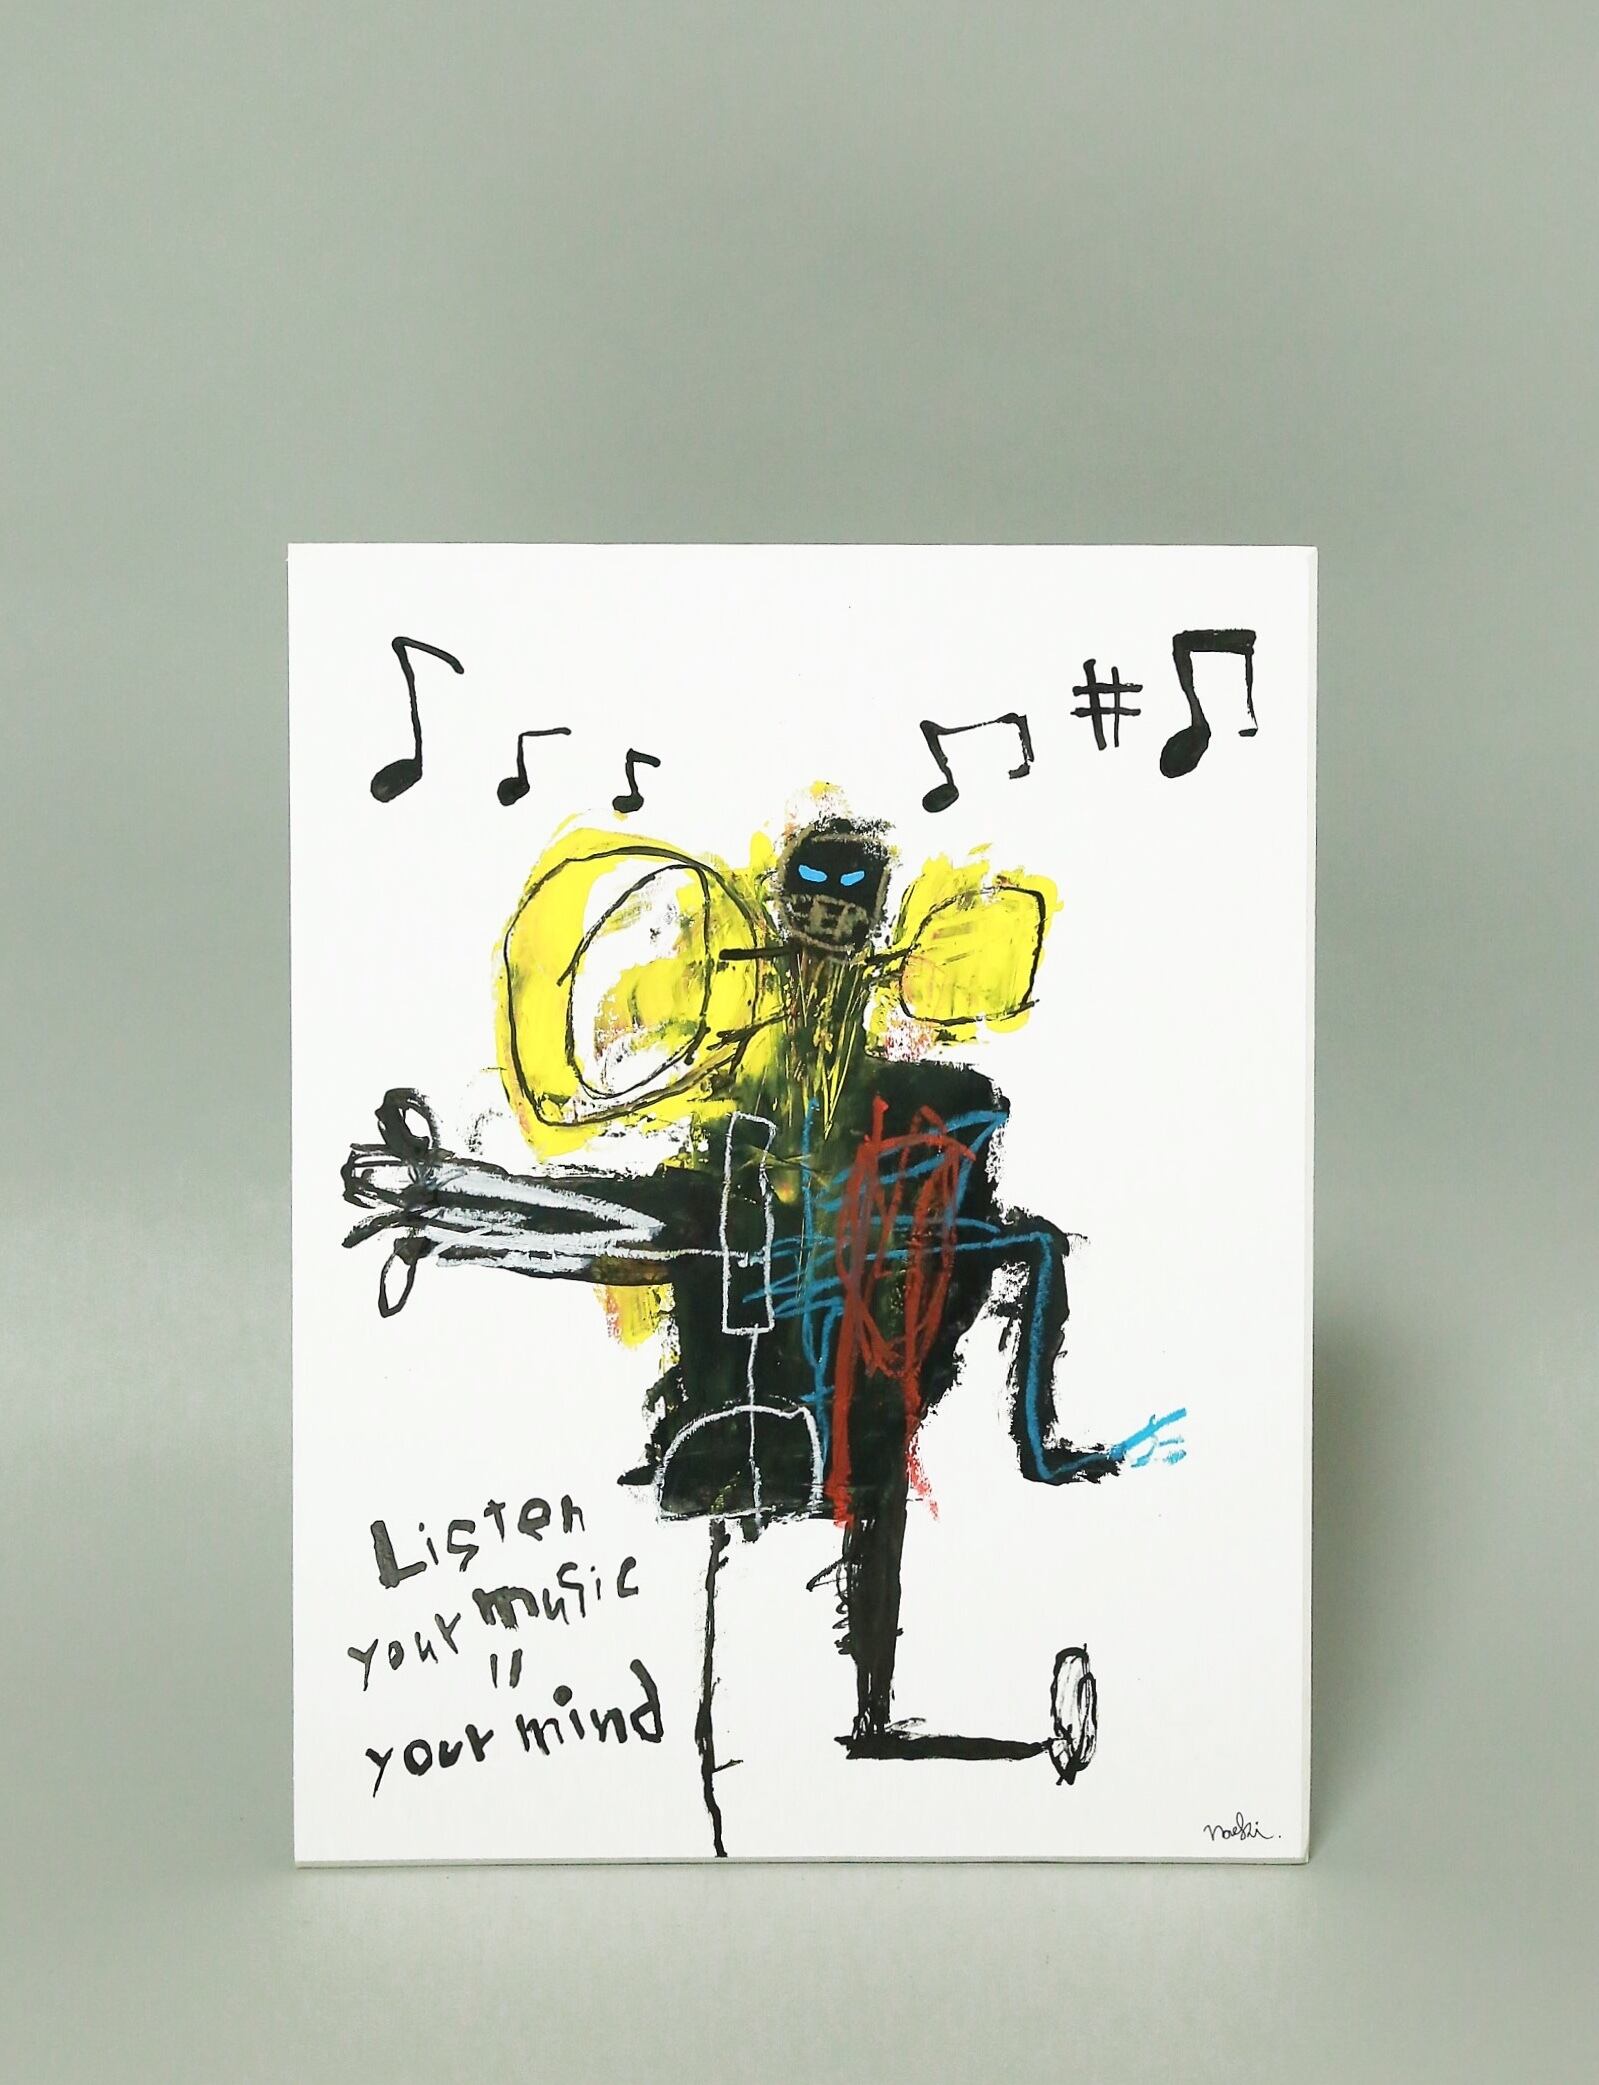 Listen
your music
"
your mind
naoki.